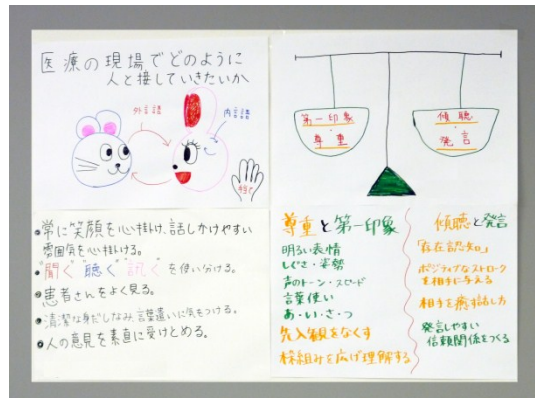 医療の現場でどのように
人と接していきたいか
外言語
内言語
第一印象
・
尊重
傾聴
・
発言
●常に笑顔を心掛け、話しかけやすい
雰囲気を心掛ける。
●"聞く""聴く""訊く"を使い分ける。
●患者さんをよく見る。
●清潔な身だしなみ、言葉遣いに気をつける。
●人の意見を素直に受けとめる。
尊重と第一印象
明るい表情
しぐさ・姿勢
声のトーン・スピード
言葉使い
あ・い・さ・つ
先入観をなくす
枠組みを広げ理解する
傾聴と発言
「存在認知」
ポジティブなストローク
を相手に与える
相手を癒す話し方
発言しやすい
信頼関係をつくる